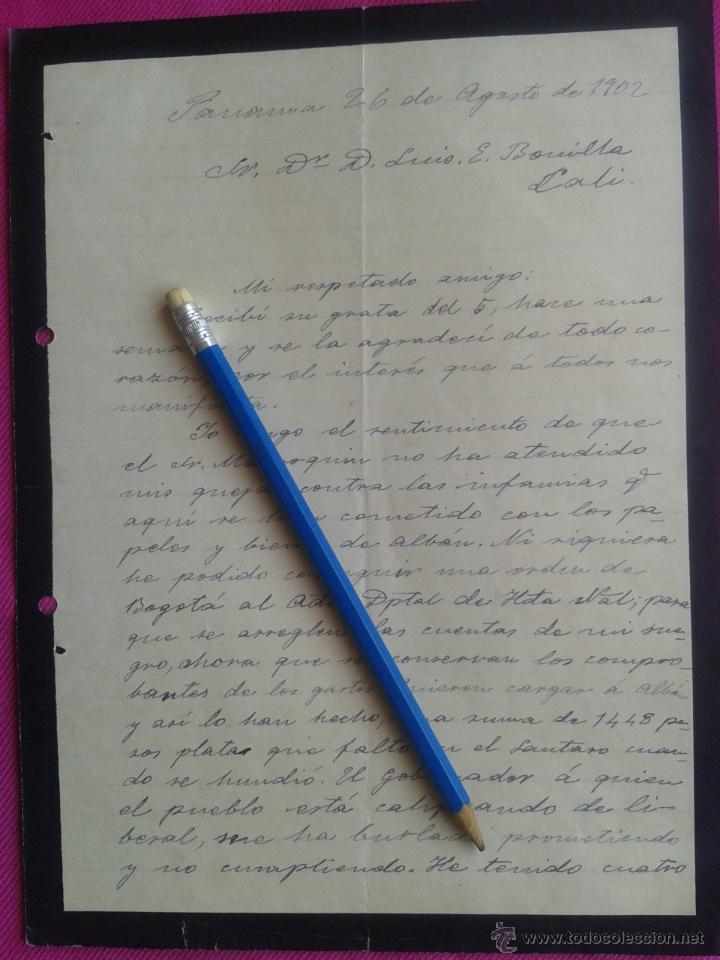 Panama 26 de Agosto de 1902
Sr. Dr. D. Luis. E. Bonilla
Cali.
Mi respetado amigo:
ecibí su grata del 5, hace una
sema y se la agradecí de todo co-
razón, por el interés que á todos nos
manif ta.
Yo go el sentimiento de que
el Sr. Ma oquin no ha atendido
mis quejas contra las infamias qe
aquí se han cometido con los pa-
peles y bien de Albán. Ni siquiera
he podido co guir una orden de
Bogotá al Ador Dptal de Hda Nal; para
que se arreglen las cuentas de mi sue-
gro, ahora que se conservan los compro-
bantes de los gastos. Quieren cargar á Albán
y así lo han hecho, la suma de 1448 pe-
sos plata que falto en el Lautaro cuan-
do se hundió. El Gobernador á quien
el pueblo está calificando de li-
beral, me ha burlado prometiendo
y no cumpliendo. He tenido cuatro
www.todocoleccion.net